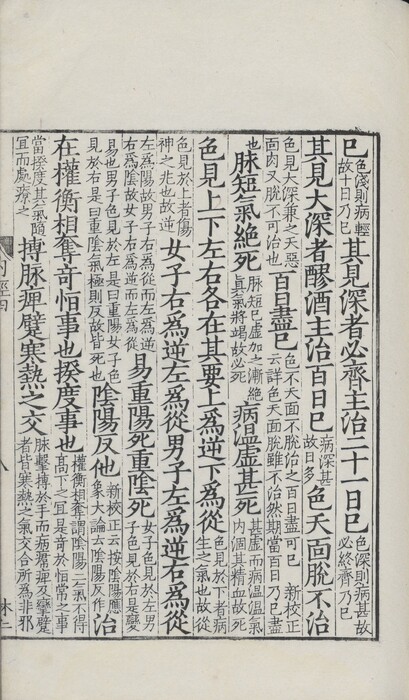 已色淺則病輕故十日乃已其見深者必齊主治二十一日已色深則病甚故必終齊乃已
其見大深者醪酒主治百日已病深甚故日多色夭面脫不治
色見大深兼之夭惡面肉又脫不可治也百日盡已色不夭面不脫治之百日盡可已 新校正云詳色夭面脫雖不治然期當百日乃已盡
也脉短氣絶死脉短已虛加之漸絶真氣將竭故必死病溫虛甚死甚虛而病溫溫氣内涸其精血故死
色見上下左右各在其要上爲逆下爲從色見於下者病生之氣也故從
色見於上者傷神之兆也故逆女子右爲逆左爲從男子左爲逆右爲從
左爲陽故男子右爲從而左爲逆右爲陰故女子右爲逆而左爲從易重陽死重陰死女子色見於左男子色見於右是變
易也男子色見於左是曰重陽女子色見於右是曰重陰氣極則反故皆死也陰陽反他新校正云按陰陽應象大論云陰陽反作治
在權衡相奪奇恒事也揆度事也權衡相奪謂陰陽二氣不得高下之宜是奇於恒常之事
當揆度其氣隨宜而處療之搏脉痺躄寒熱之交脉擊搏於手而病痺及攣躄者皆寒熱之氣交合所爲非邪
内經四